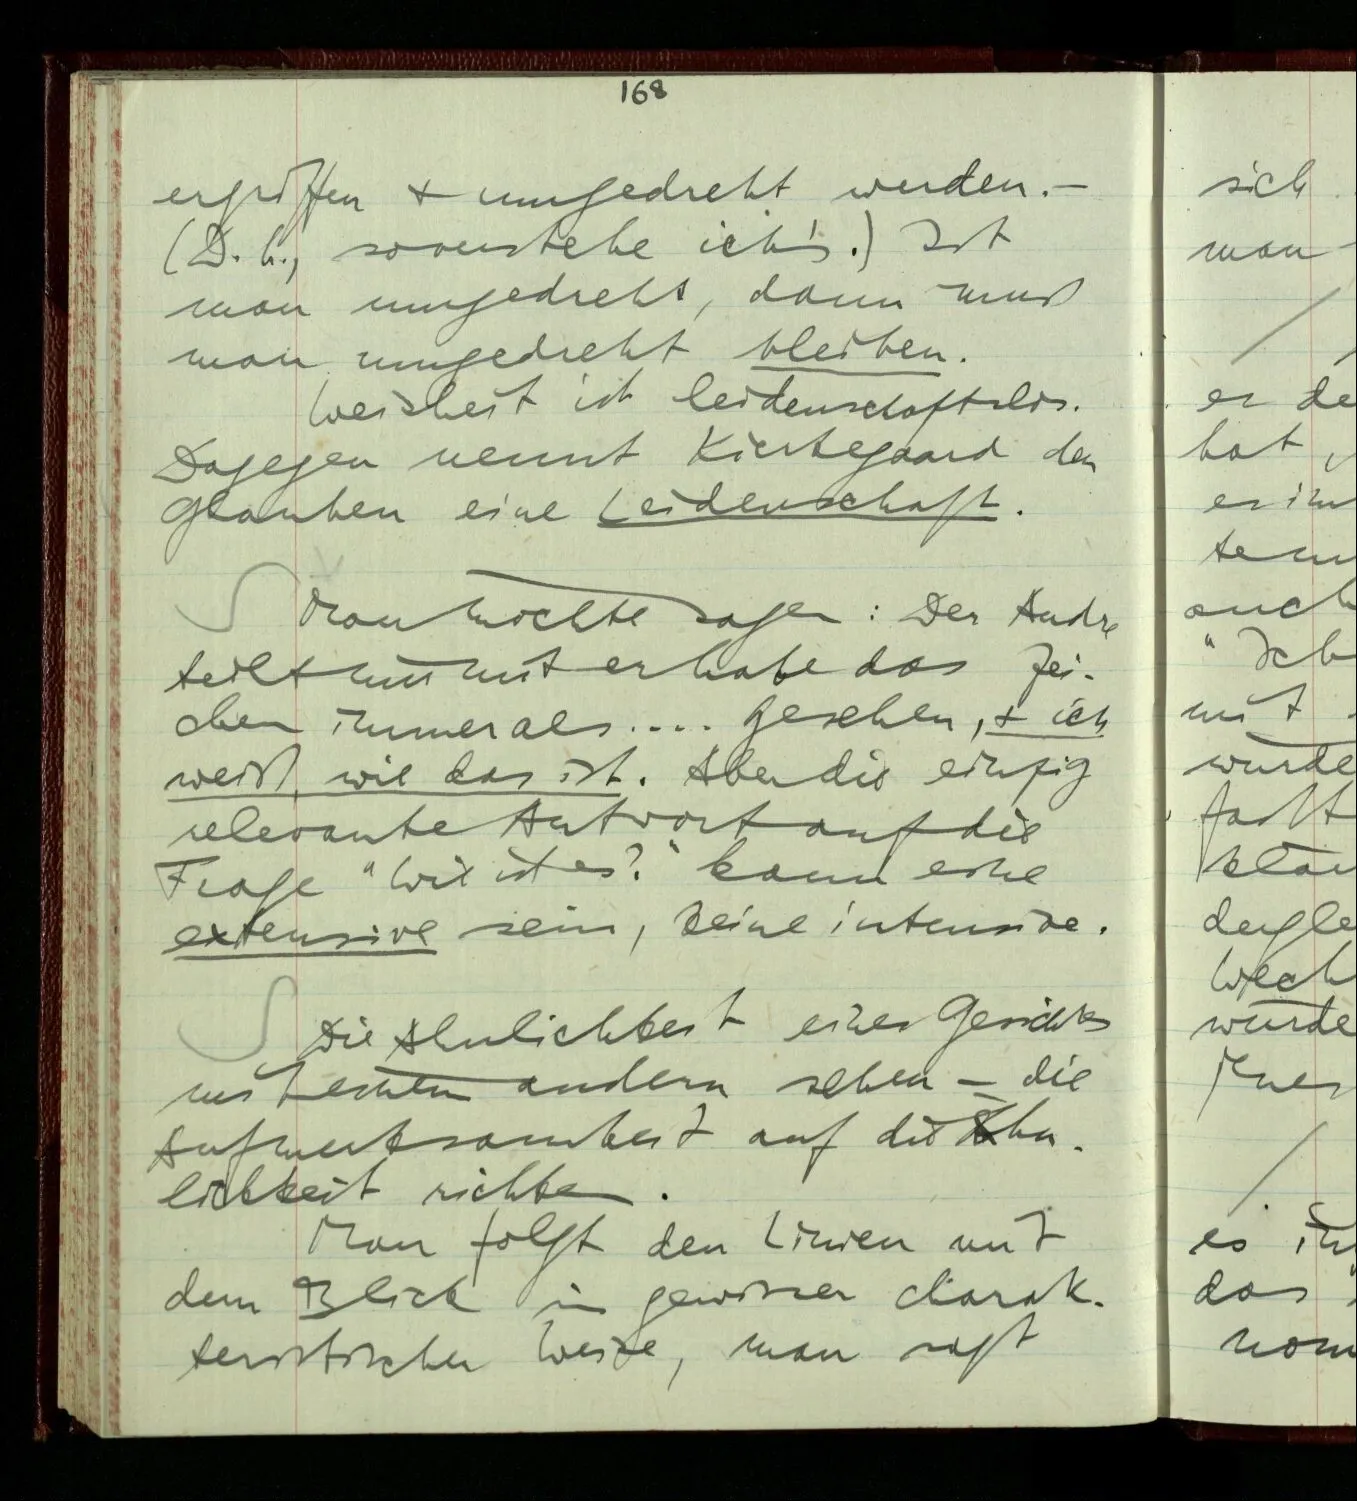 168
ergriffen + umgedreht werden.–
(D.h., so verstehe ich's.) Ist
man umgedreht, dann muß
man umgedreht bleiben.
Weisheit ist leidenschaftslos.
Dagegen nennt Kierkegaard den
Glauben eine Leidenschaft.
Man möchte sagen: Der Andre
teilt mir mit er habe das Zei-
chen immer als .... gesehen, + ich
weiß, wie das ist. Aber die einzig
relevante Antwort auf die
Frage "Wie ist es?" kann eine
extensive sein, keine intensive.
Die Ähnlichkeit eines Gesichts
mit einem andern sehen – die
Aufmerksamkeit auf die Ähn-
lichkeit richten.
Man folgt den Linien mit
dem Blick in gewisser charak-
teristischer Weise, man sagt
sich
man
er de
hat
er im
auch
"Ich
mit
wurde
dergle
würde
es
das